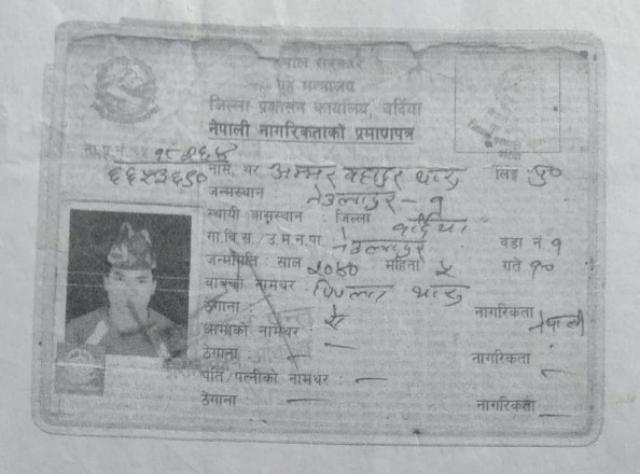 नेपाल सरकार
गृह मन्त्रालय
जिल्ला प्रशासन कार्यालय, बर्दिया
नेपाली नागरिकताको प्रमाणपत्र
नाम, थर अम्मर बहादुर थारु लिङ्ग पु०
जन्मस्थान नेउलापुर - १
स्थायी बासस्थान : जिल्ला बर्दिया
गा.वि.स./उ.म.न.पा नेउलापुर वडा नं १
जन्ममिति : साल २०४० महिना ५ गते १०
बाबुको नामथर : थारु
ठेगाना : ऐ नागरिकता नेपाली
आमाको नामथर : —
ठेगाना : — नागरिकता —
पति/पत्नीको नामथर : —
ठेगाना — नागरिकता —